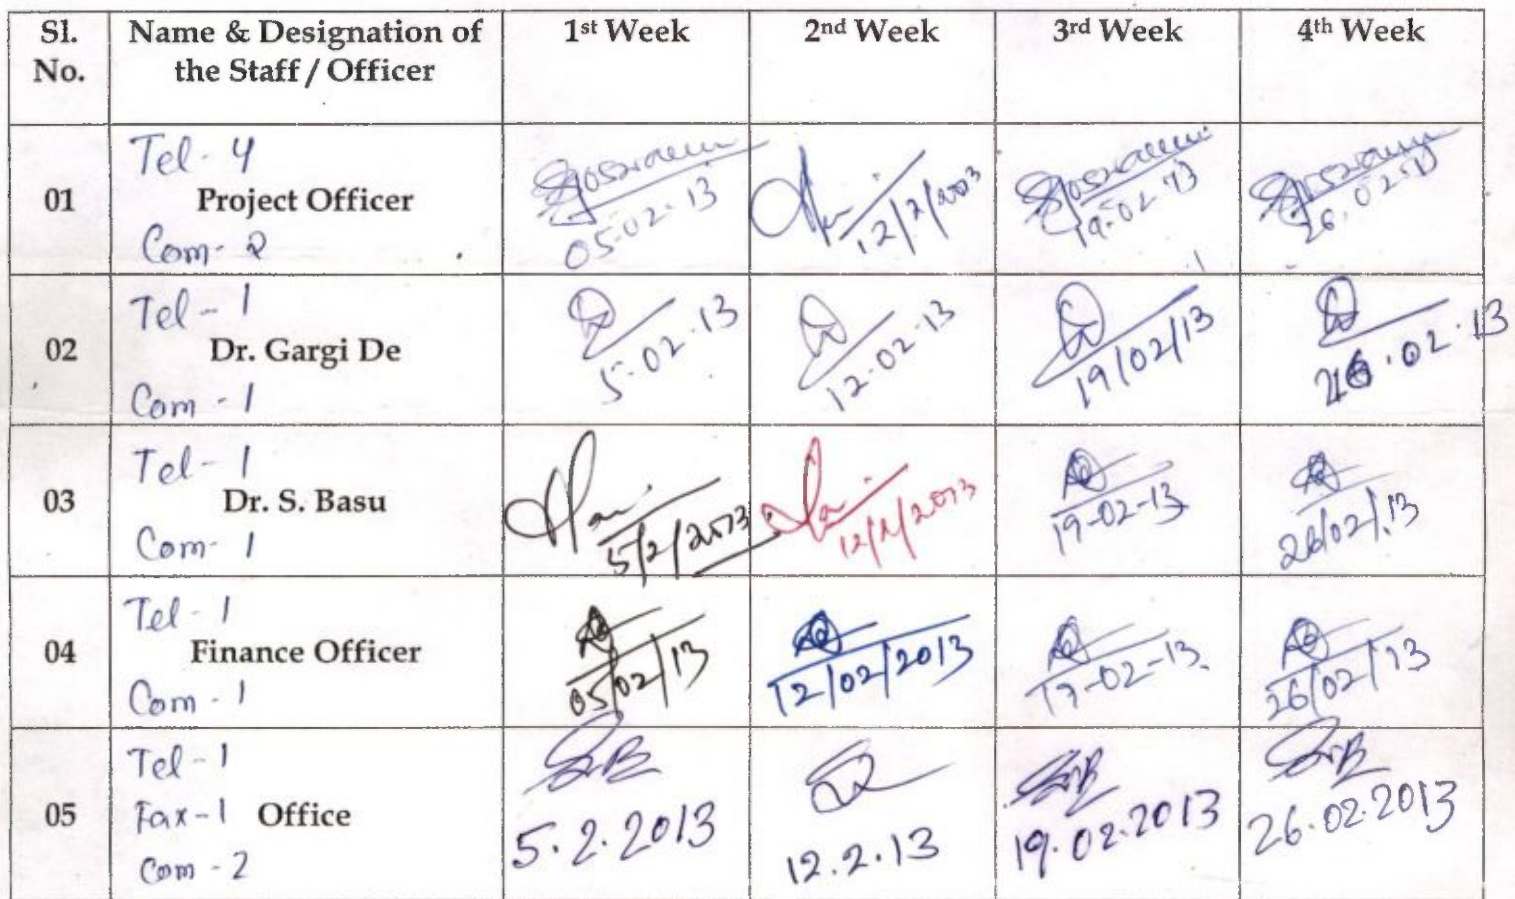 Sl. No. Name & Designation of the Staff / Officer 1st Week 2nd Week 3rd Week 4th Week
Tel - 4
01 Project Officer
Com - 2
05.02.13 12/2/2013 19.02.13 26.02.13
Tel - 1
02 Dr. Gargi De
Com - 1
5.02.13 12.02.13 19/02/13 26.02.13
Tel - 1
03 Dr. S. Basu
Com - 1
5/2/2013 12/2/2013 19-02-13 26/02/13
Tel - 1
04 Finance Officer
Com - 1
05/02/13 12/02/2013 17-02-13 26/02/13
Tel - 1
05 Fax - 1 Office
Com - 2
5.2.2013 12.2.13 19.02.2013 26.02.2013